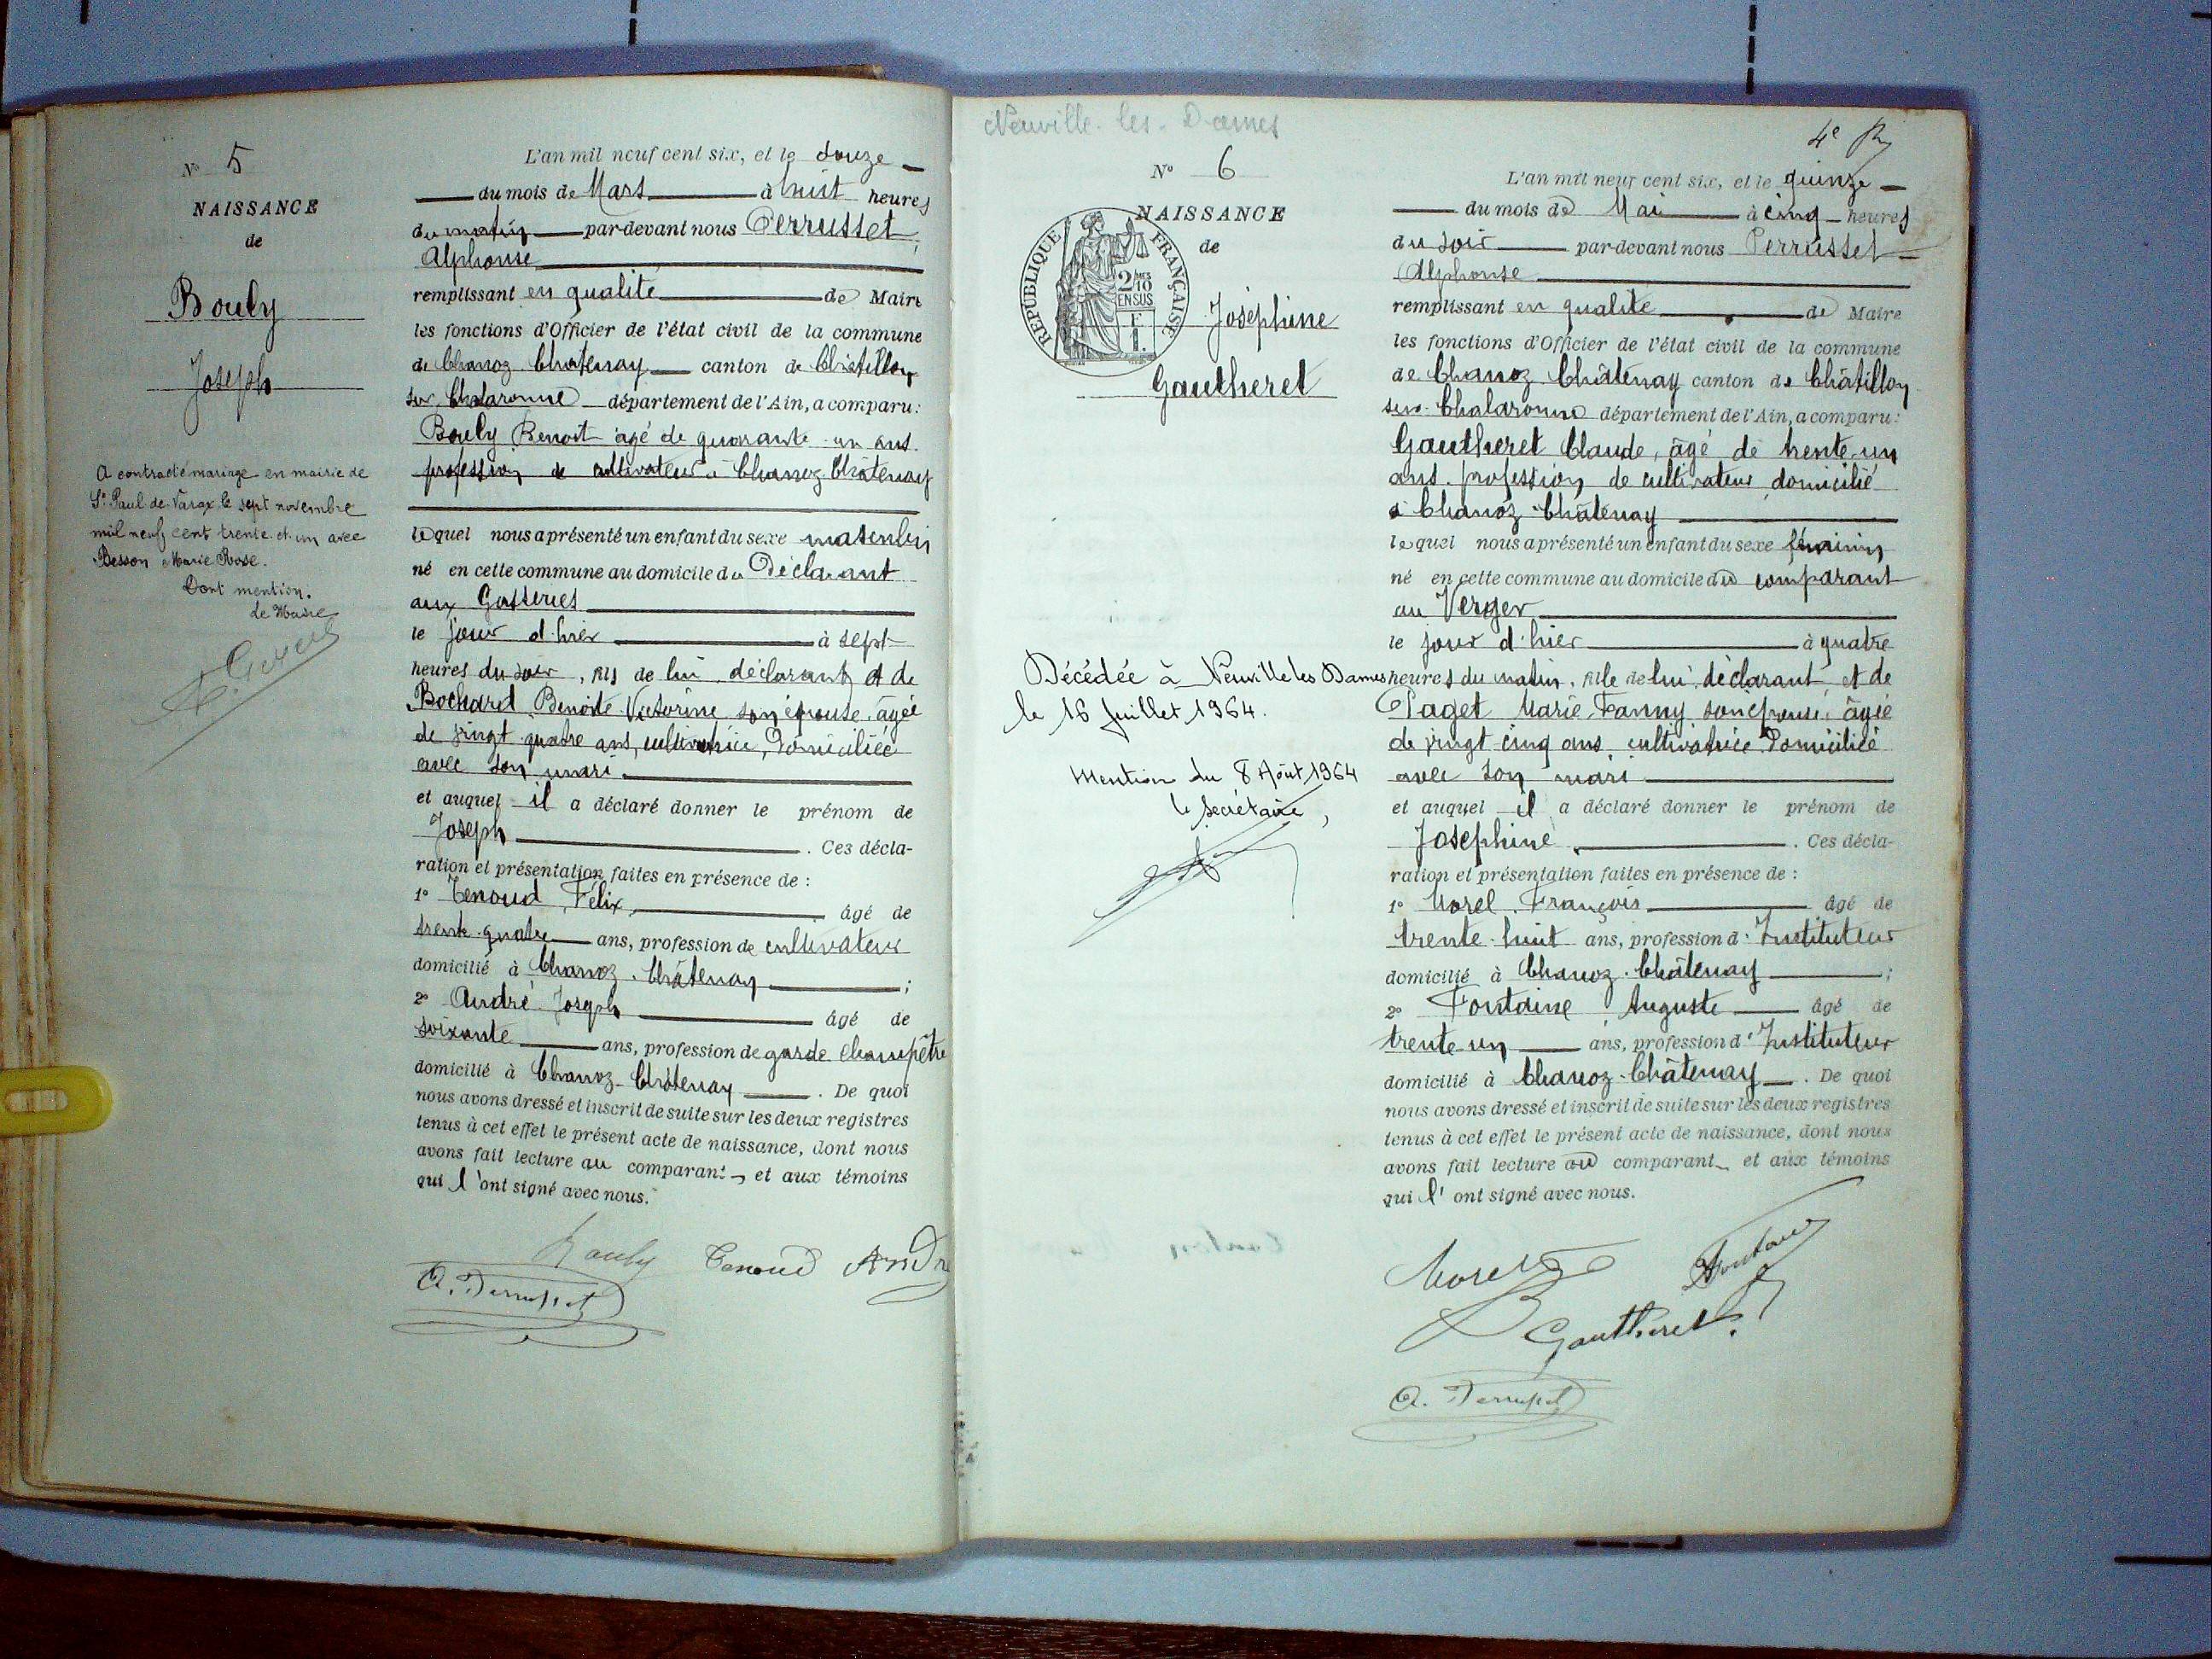 N° 5
NAISSANCE
de
Bouly
Joseph
A contracté mariage en mairie de
St Paul de Varax le sept novembre
mil neuf cent trente et un avec
Besson Marie Rose.
Dont mention.
Le Maire
L'an mil neuf cent six, et le douze
du mois de Mars à huit heures
du matin par-devant nous Perrusset
Alphonse
remplissant en qualité de Maire
les fonctions d'Officier de l'état civil de la commune
de Chanoz Châtenay canton de Châtillon
sur Chalaronne département de l'Ain, a comparu:
Bouly Benoit âgé de quarante un ans.
profession de cultivateur à Chanoz Châtenay
lequel nous a présenté un enfant du sexe masculin
né en cette commune au domicile du Déclarant
aux
le jour d'hier à sept
heures du soir, fils de lui déclarant et de
Bochard Benoite Victorine son épouse, âgée
de vingt quatre ans, cultivatrice, Domiciliée
avec son mari
et auquel il a déclaré donner le prénom de
Joseph . Ces décla-
ration et présentation faites en présence de :
1° Tenoud, Félix, âgé de
trente quatre ans, profession de cultivateur
domicilié à Chanoz-Châtenay ;
2° André Joseph âgé de
soixante ans, profession de garde champêtre
domicilié à Chanoz-Châtenay . De quoi
nous avons dressé et inscrit de suite sur les deux registres
tenus à cet effet le présent acte de naissance, dont nous
avons fait lecture au comparant et aux témoins
qui l'ont signé avec nous.
Bouly Tenoud André
A. Perrusset
Neuville-les-Dames
4e
N° 6
NAISSANCE
de
RÉPUBLIQUE FRANÇAISE
2/10
EN SUS
Joséphine
Gautheret
Décédée à Neuville les Dames
le 16 Juillet 1964.
Mention du 8 Août 1964
le secrétaire,
L'an mil neuf cent six, et le quinze
du mois de Mai à cinq heures
du soir par-devant nous Perrusset
Alphonse
remplissant en qualité de Maire
les fonctions d'Officier de l'état civil de la commune
de Chanoz Châtenay canton de Châtillon
sur Chalaronne département de l'Ain, a comparu:
Gautheret Claude, âgé de trente-un
ans. profession de cultivateur, domicilié
à Chanoz-Châtenay
lequel nous a présenté un enfant du sexe féminin
né en cette commune au domicile du comparant
au Verger
le jour d'hier à quatre
heures du matin, fille de lui déclarant, et de
Paget Marie Fanny son épouse, âgée
de vingt cinq ans cultivatrice Domiciliée
avec son mari
et auquel il a déclaré donner le prénom de
Josephine . Ces décla-
ration et présentation faites en présence de :
1° Morel François âgé de
trente-huit ans, profession d'Instituteur
domicilié à Chanoz-Châtenay ;
2° Fontaine Auguste âgé de
trente un ans, profession d'Instituteur
domicilié à Chanoz-Châtenay . De quoi
nous avons dressé et inscrit de suite sur les deux registres
tenus à cet effet le présent acte de naissance, dont nous
avons fait lecture au comparant et aux témoins
qui l'ont signé avec nous.
Morel Fontaine
Gautheret
A. Perrusset